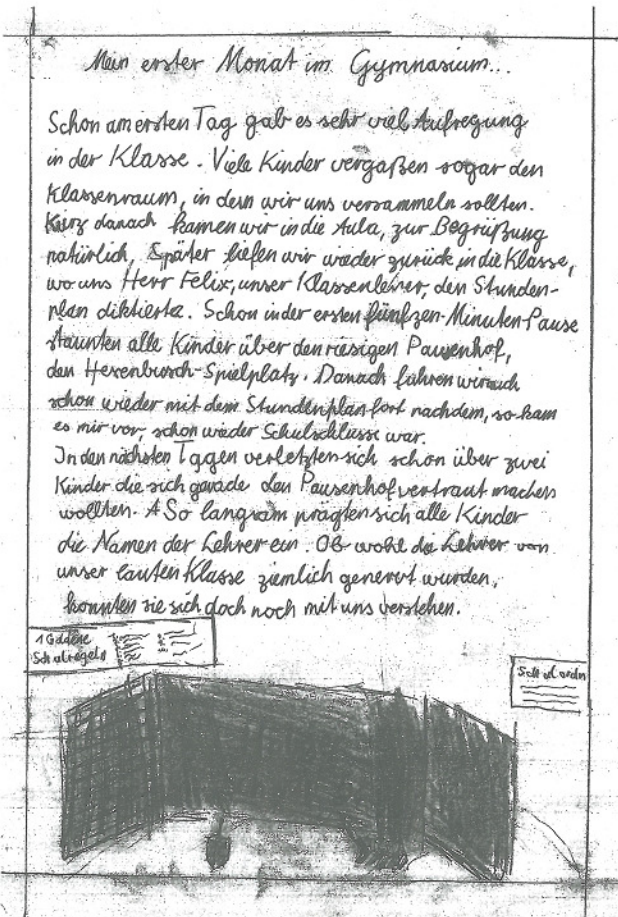 Mein erster Monat im Gymnasium...
Schon am ersten Tag gab es sehr viel Aufregung
in der Klasse. Viele Kinder vergaßen sogar den
Klassenraum, in dem wir uns versammeln sollten.
Kurz danach kamen wir in die Aula, zur Begrüßung
natürlich, Später liefen wir wieder zurück in die Klasse,
wo uns Herr Felix, unser Klassenlehrer, den Stunden-
plan diktierte. Schon in der ersten fünfzen-Minuten-Pause
staunten alle Kinder über den riesigen Pausenhof,
den Hexenbusch-Spielplatz. Danach fuhren wir auch
schon wieder mit dem Stundenplan fort nachdem, so kam
es mir vor, schon wieder Schulschlusse war.
In den nächsten Tagen verletzten sich schon über zwei
Kinder die sich gerade den Pausenhof vertraut machen
wollten. So langsam prägten sich alle Kinder
die Namen der Lehrer ein. Ob wohl die Lehrer von
unser lauten Klasse ziemlich genervt wurden,
konnten sie sich doch noch mit uns verstehen.
1 Goldene
Schulregeln
Schulordn